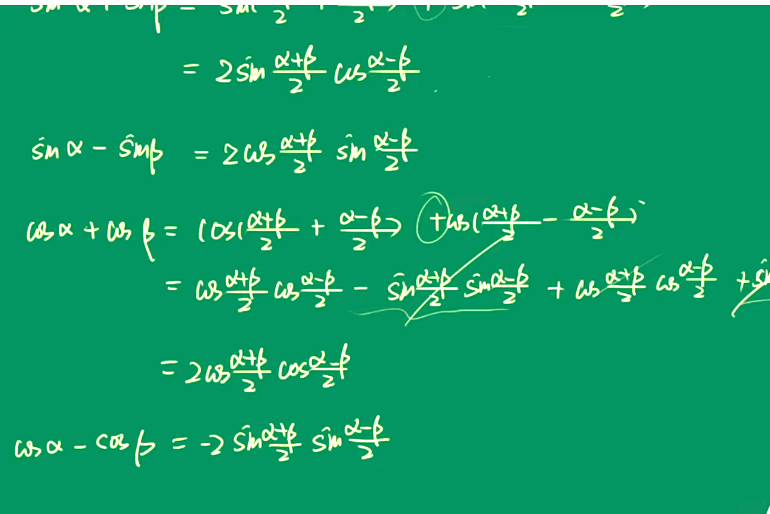 = 2 sin (α+β)/2 cos (α-β)/2
sin α - sin β = 2 cos (α+β)/2 sin (α-β)/2
cos α + cos β = cos( (α+β)/2 + (α-β)/2 ) + cos( (α+β)/2 - (α-β)/2 )
= cos (α+β)/2 cos (α-β)/2 - sin (α+β)/2 sin (α-β)/2 + cos (α+β)/2 cos (α-β)/2 +
= 2 cos (α+β)/2 cos (α-β)/2
cos α - cos β = -2 sin (α+β)/2 sin (α-β)/2